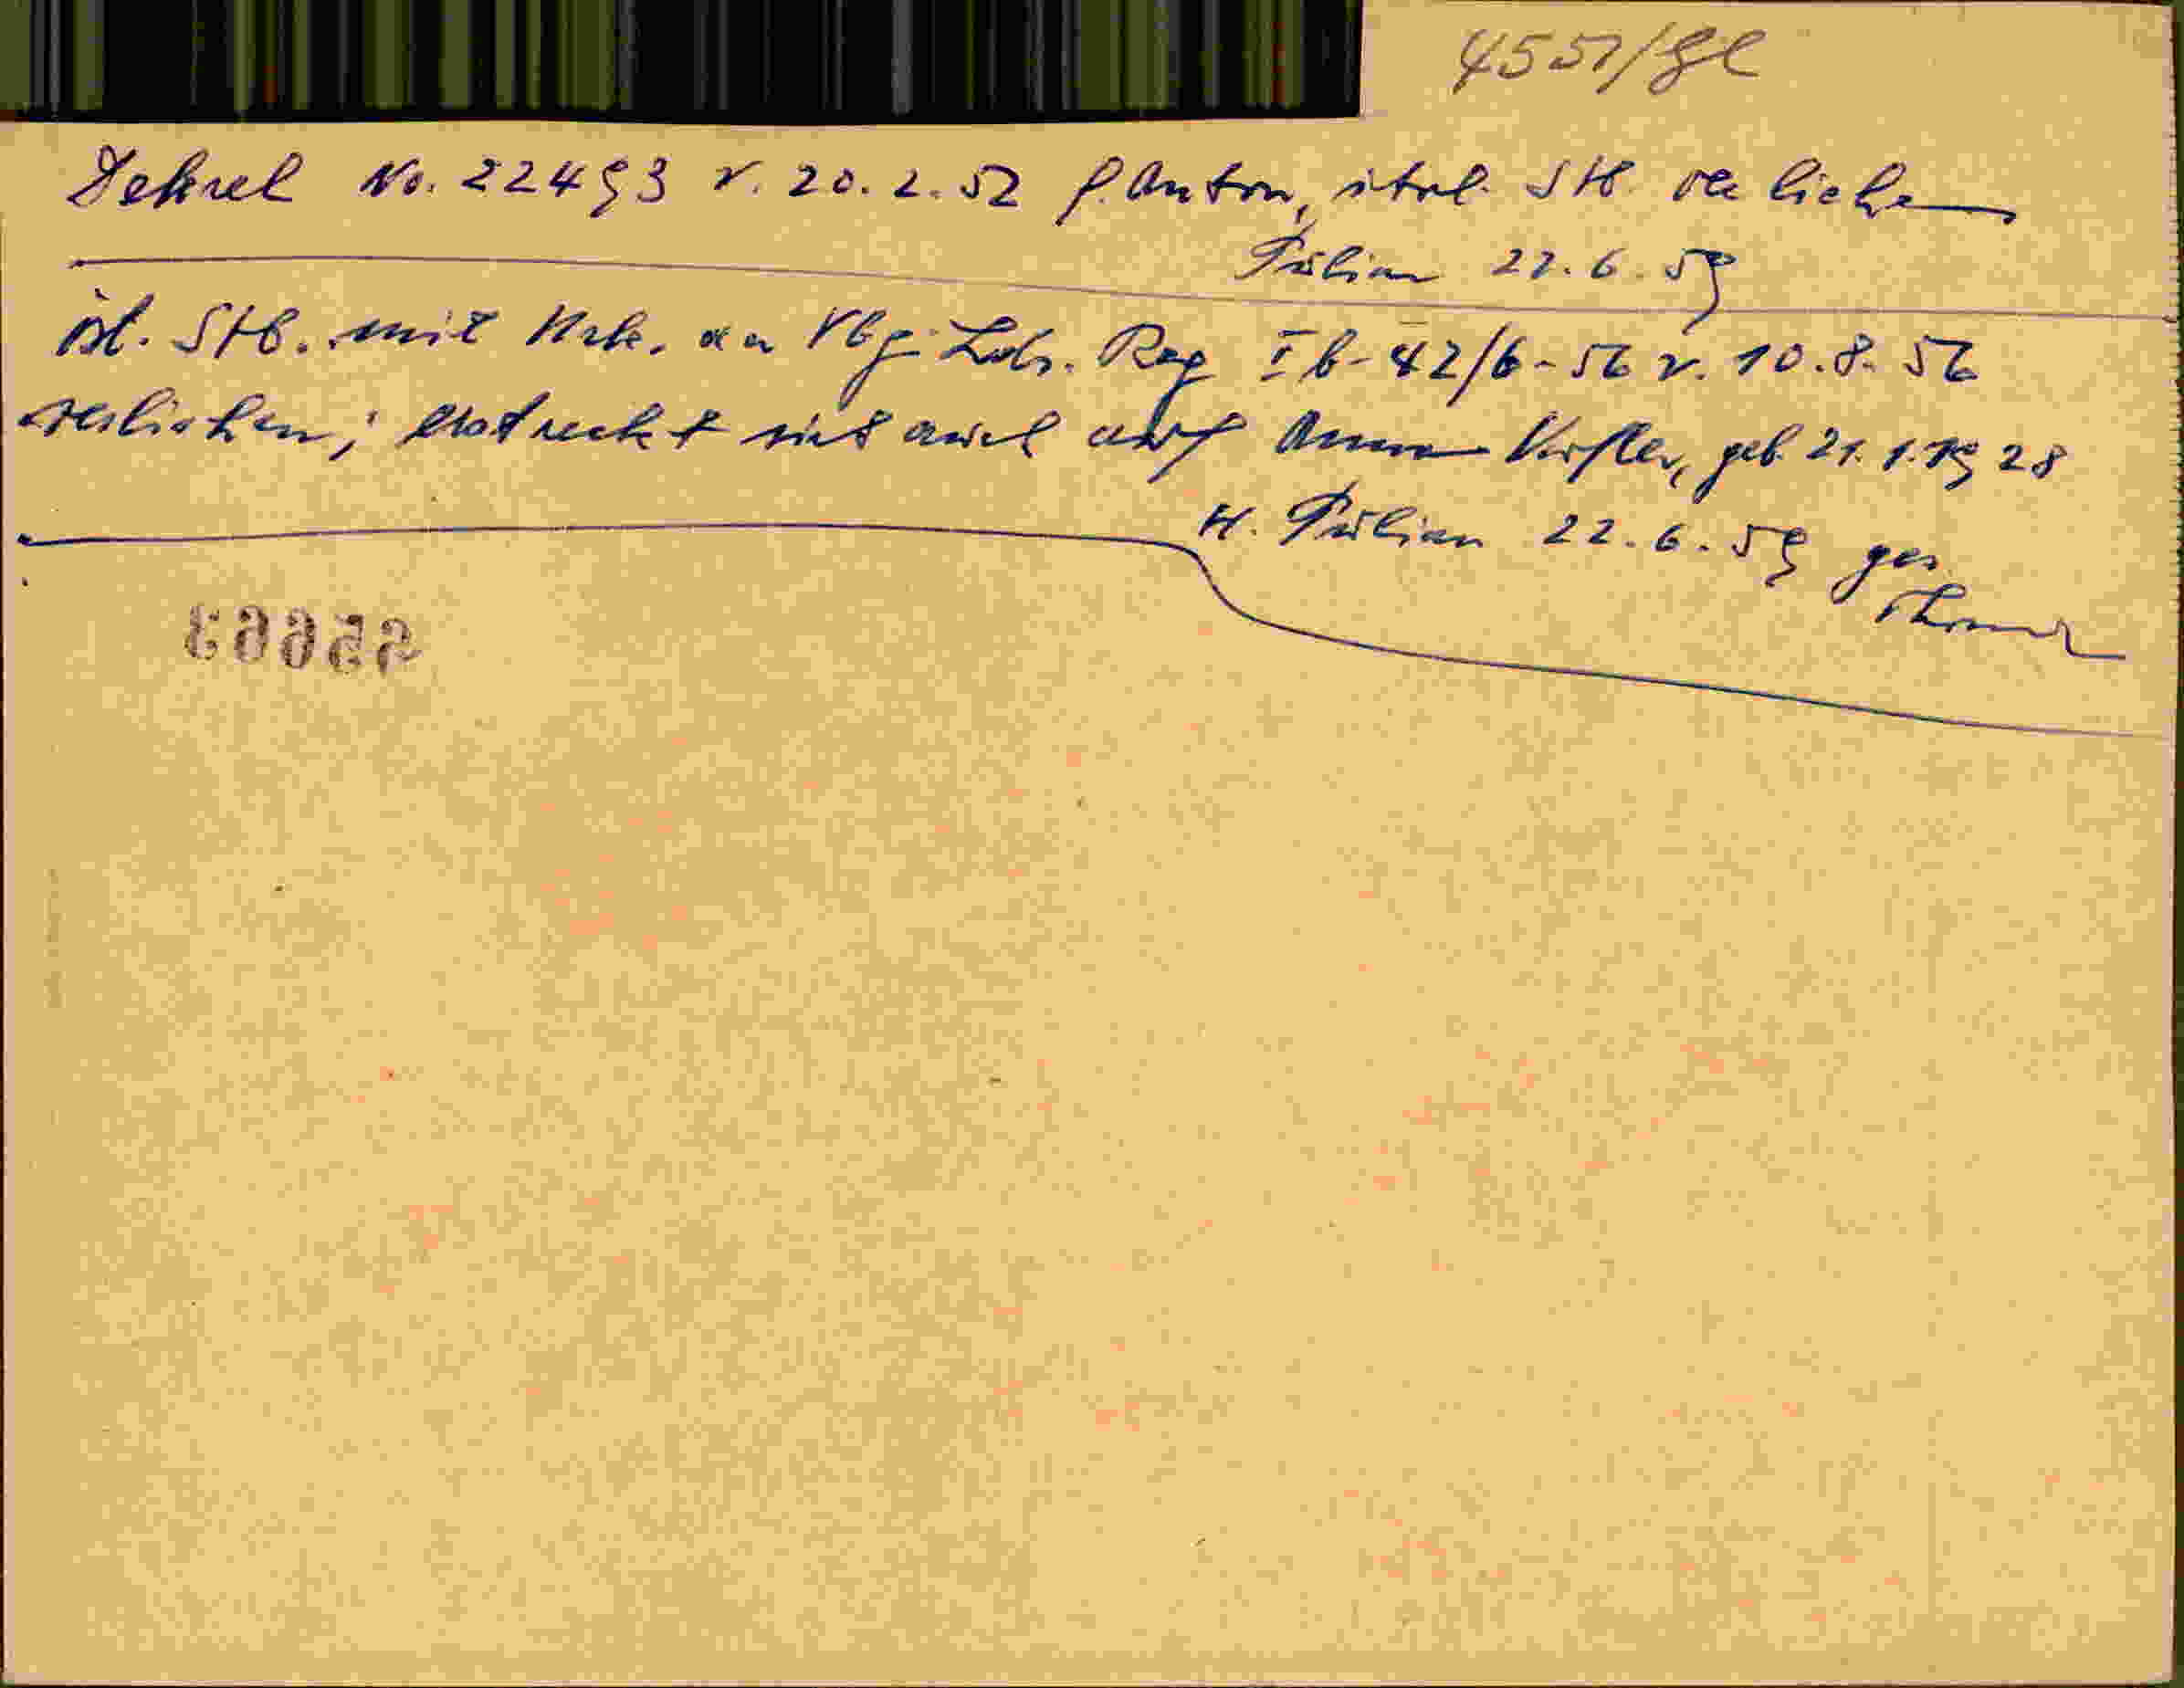 4551/Gl
Dekret No. 22493 v. 20.2.52 f. Anton, ital. Stb. verliehen
22.6.59
öst. Stb. mit Urk. der Vbg. Lds. Reg Ib-42/6-56 v. 10.8.56
verliehen; erstreckt sich auch auf Anna Kofler, geb 21.1.1928
H. 22.6.59 ges
55663